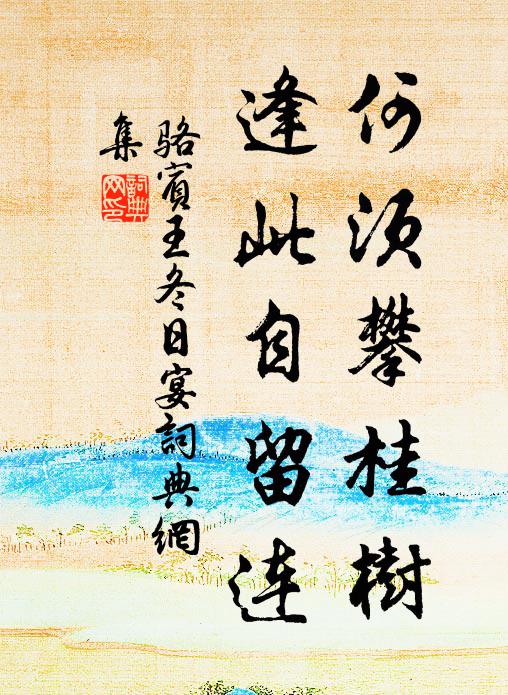 何須攀桂樹
逢此自留連
駱賓王冬日宴詞典網
集
詞典
网印